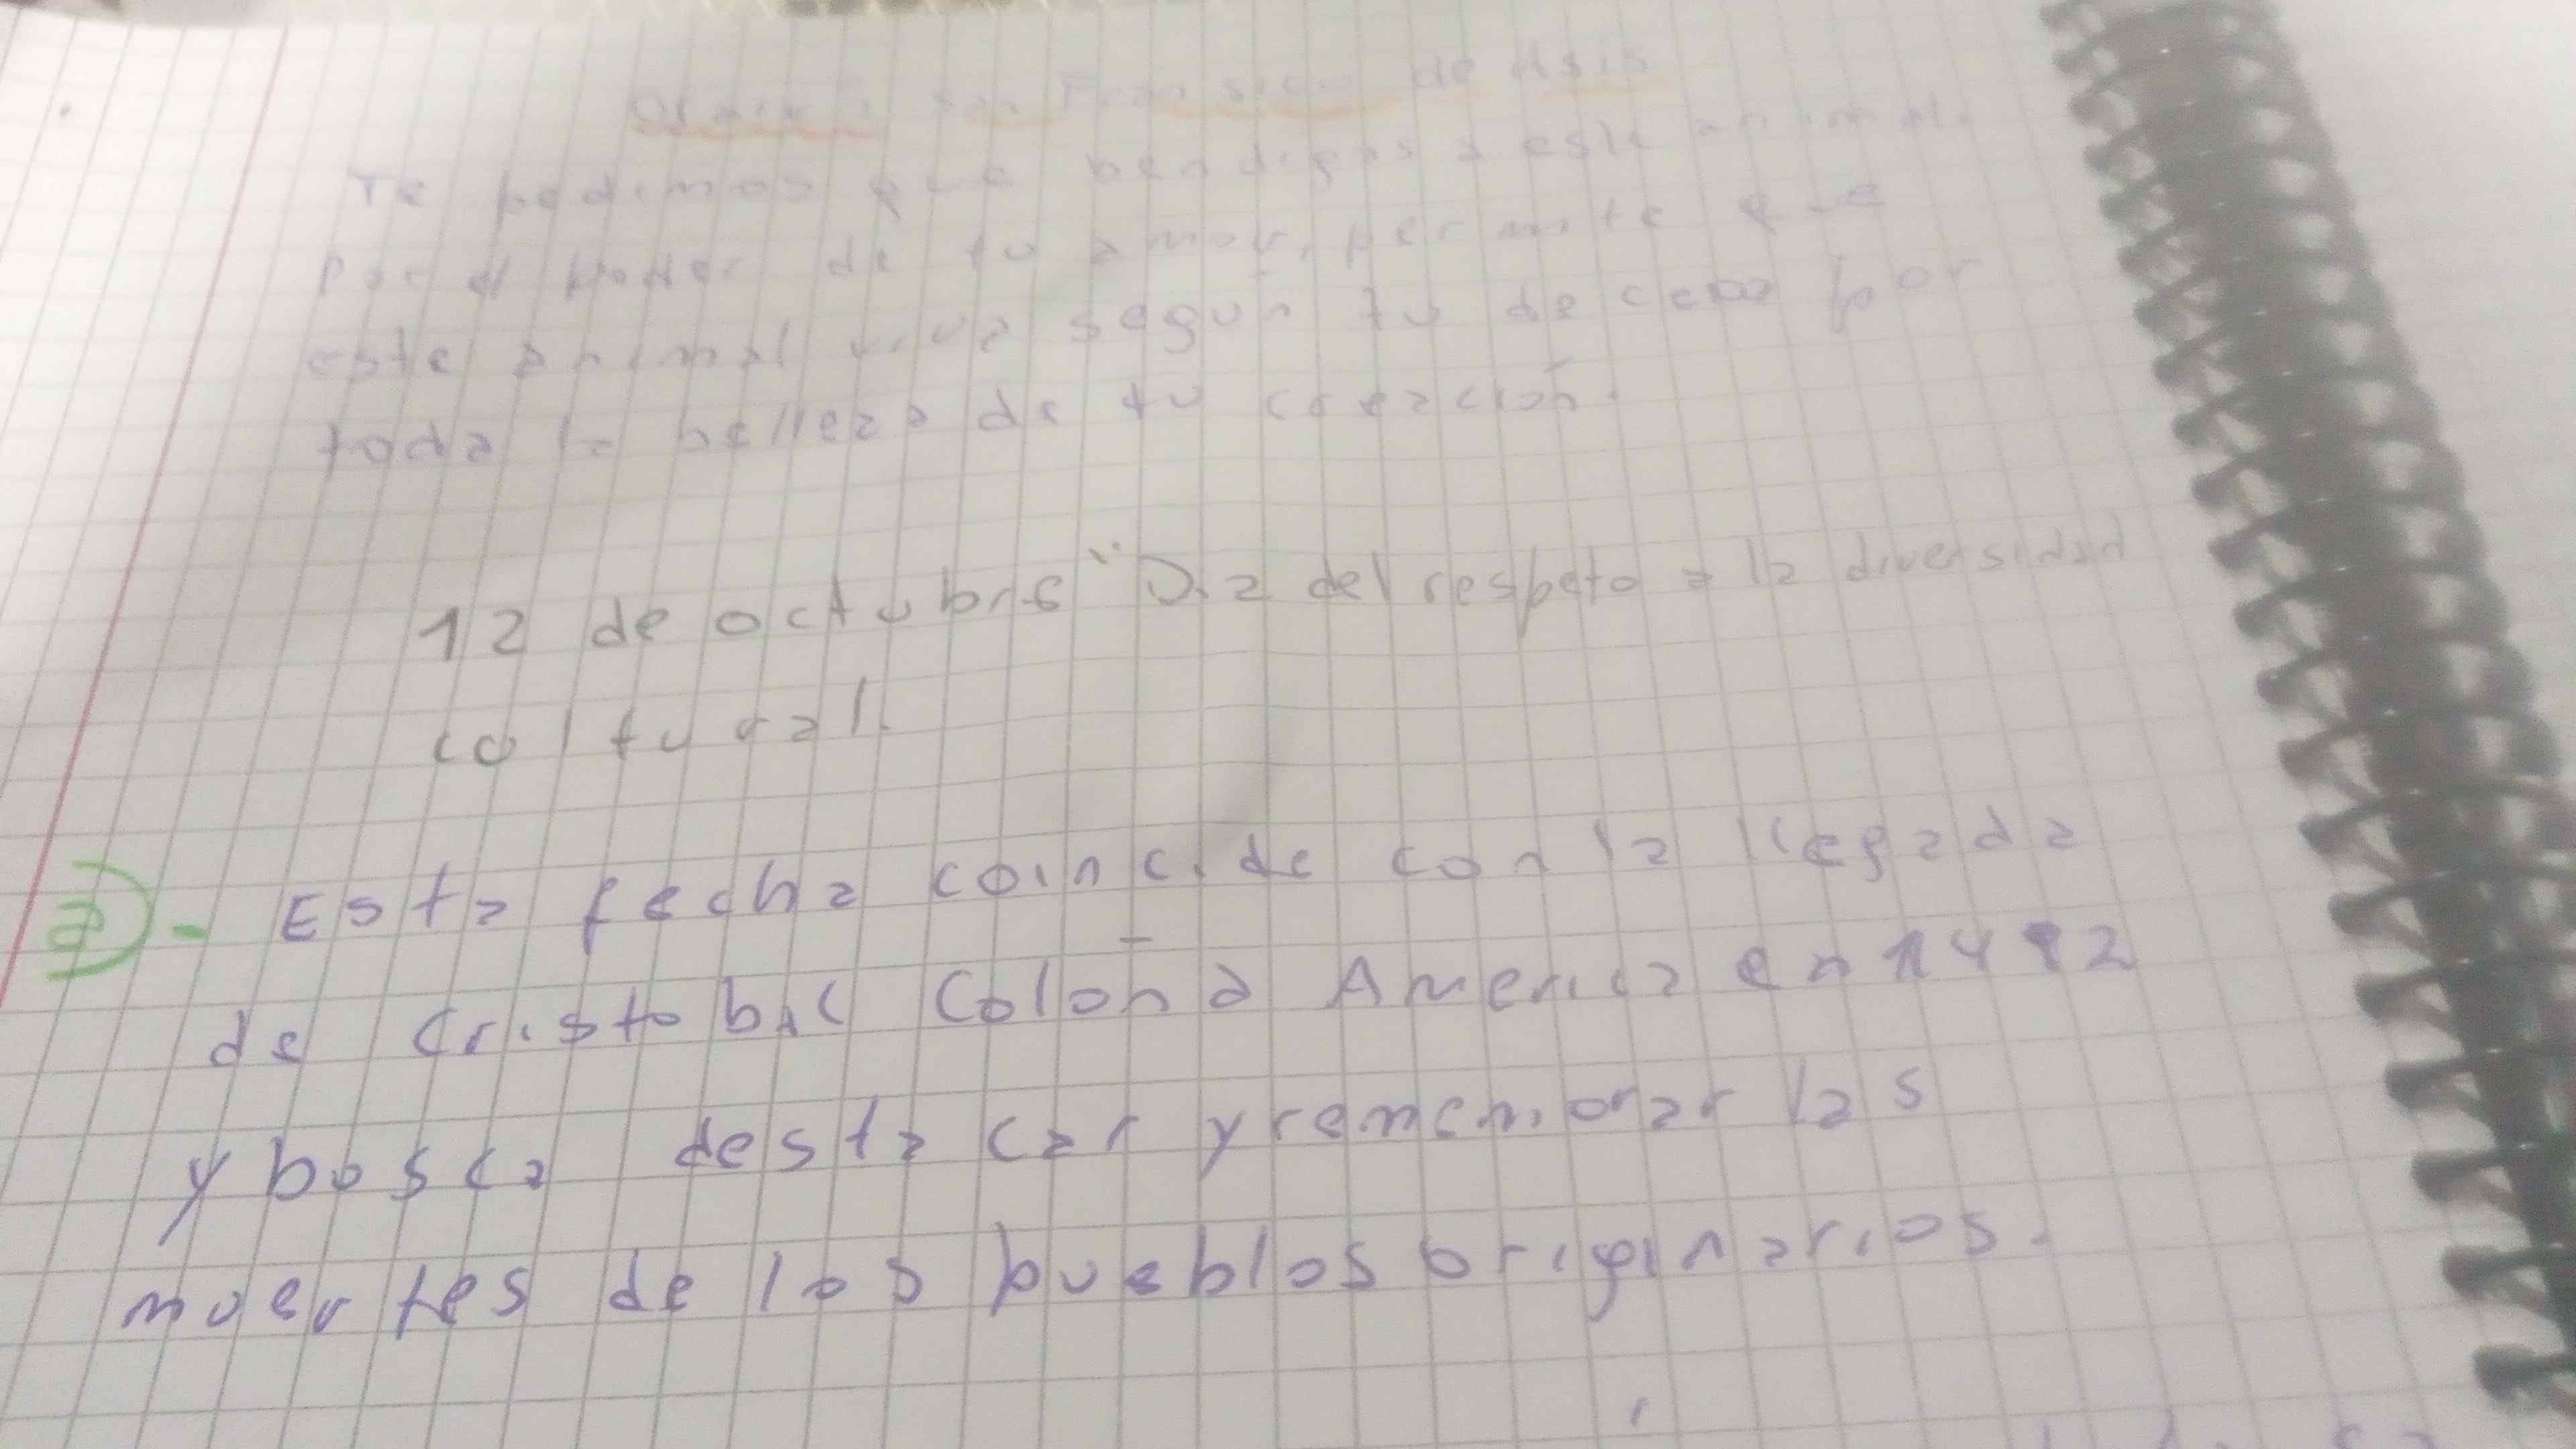 San Fransisco de Asis
Te pedimos que bendigas a este animal.
Por el poder de tu amor, permite que
este animal viva según tu de ceso por
toda la belleza de tu creación.
12 de octubre "Dia del respeto a la diversidad
coltural.
a)- Esta fecha coincide con la llegada
de Cristobal Colón a America en 1492
y busca destacar y rememorar las
muertes de los pueblos originarios.